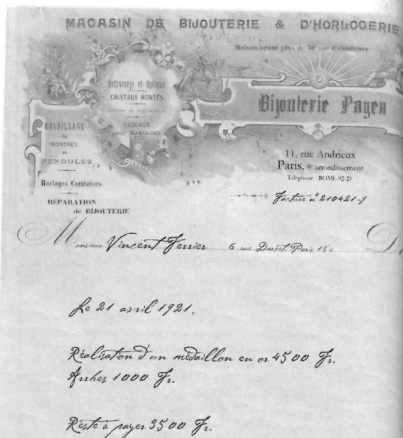 MAGASIN DE BIJOUTERIE & D'HORLOGERIE
Maison ayant plus de 50 ans d'existence
Orfèvrerie et Optique
CRISTAUX MONTÉS
CADEAUX
pour MARIAGES
Bijouterie Payen
RHABILLAGE
DE
MONTRES
et
PENDULES
Horloges Comtoises
RÉPARATION
de BIJOUTERIE
11, rue Andrieux
Paris, 8e arrondissement
Téléphone ROME 92-21
Facture n° 210421-9
Monsieur Vincent Ferrier 6 rue Paris 18e
Le 21 avril 1921.
Réalisation d'un médaillon en or 4500 Fr.
Arrhes 1000 Fr.
Reste à payer 3500 Fr.